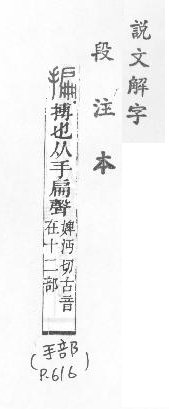 説文解字
段注本
揙搏也从手扁聲
婢沔切古音
在十二部
(手部
P.616)